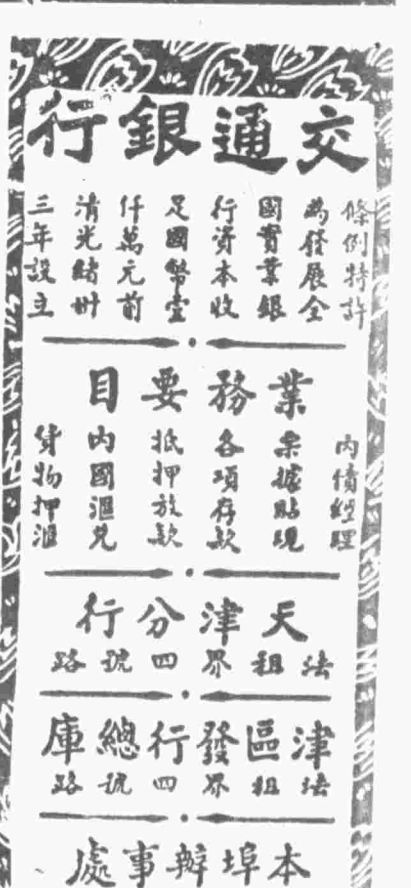 交通銀行
條例特許
為發展全
國實業銀
行資本收
足國幣壹
仟萬元前
清光緒卅
三年設立
業務要目
內債經理
票據貼現
各項存款
抵押放款
內國滙兌
貨物押滙
天津分行
法租界四號路
津區發行總庫
法租界四號路
本埠辦事處